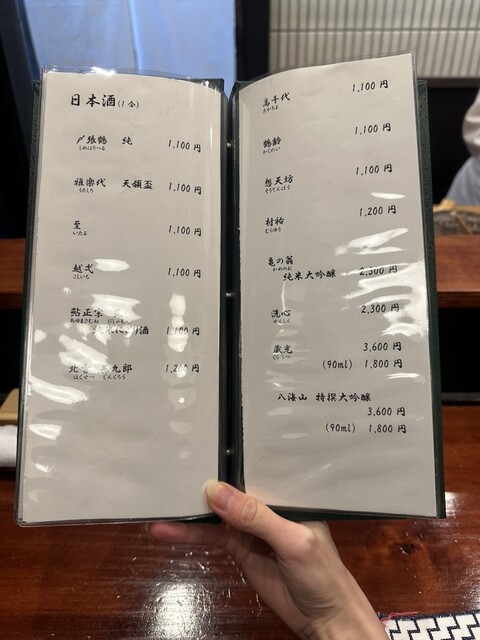 日本酒(1合)
〆張鶴 純 1,100円
しめはりつる
雅楽代 天領盃 1,100円
うたしろ
至 1,100円
いたる
越弌 1,100円
こしいち
鮎正宗
あゆまさむね
にごり酒 1,100円
九郎 1,200円
じんくろう
高千代 1,100円
たかちよ
鶴齢 1,100円
かくれい
想天坊 1,100円
そうてんぼう
村祐 1,200円
むらゆう
亀の翁
かめのお
純米大吟醸 2,300円
洗心 2,300円
せんしん
蔵光 3,600円
(90ml) 1,800円
八海山 特撰大吟醸
3,600円
(90ml) 1,800円